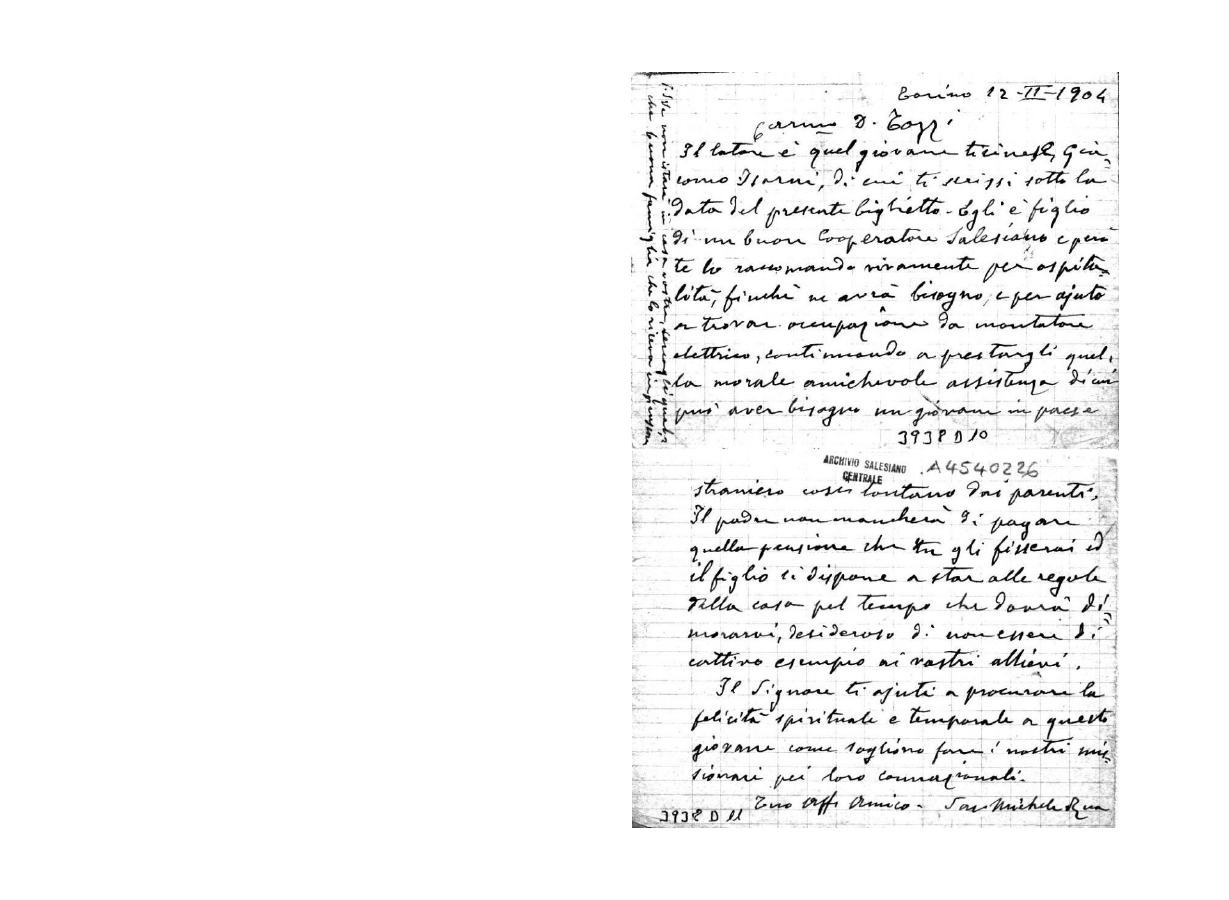 Torino 12-II-1904
Carmo D. Tozzi
Il latore è quel giovane ticinese, Gia-
como Isorni, di cui ti scrissi sotto la
data del presente biglietto. Egli è figlio
di un buon Cooperatore Salesiano e però
te lo raccomando vivamente per ospita-
lità, finchè ne avrà bisogno, e per ajuto
a trovar occupazione da montatore
elettrico, continuando a prestargli quel-
la morale amichevole assistenza di cui
può aver bisogno un giovane in paese
3938 D 10
ARCHIVIO SALESIANO
CENTRALE
A4540226
straniero così lontano dai parenti.
Il padre non mancherà di pagare
quella pensione che tu gli fisserai ed
il figlio si dispone a star alle regole
della casa pel tempo che dovrà di-
morarvi, desideroso di non essere di
cattivo esempio ai vostri allievi.
Il Signore ti ajuti a procurare la
felicità spirituale e temporale a questo
giovane come sogliono fare i nostri mis-
sionari pei loro connazionali.
Tuo aff. amico. Sac. Michele Rua
3938 D 11
P.S. Se non istarà in casa vostra, cercagli qual-
che buona famiglia che lo riceva in pensione